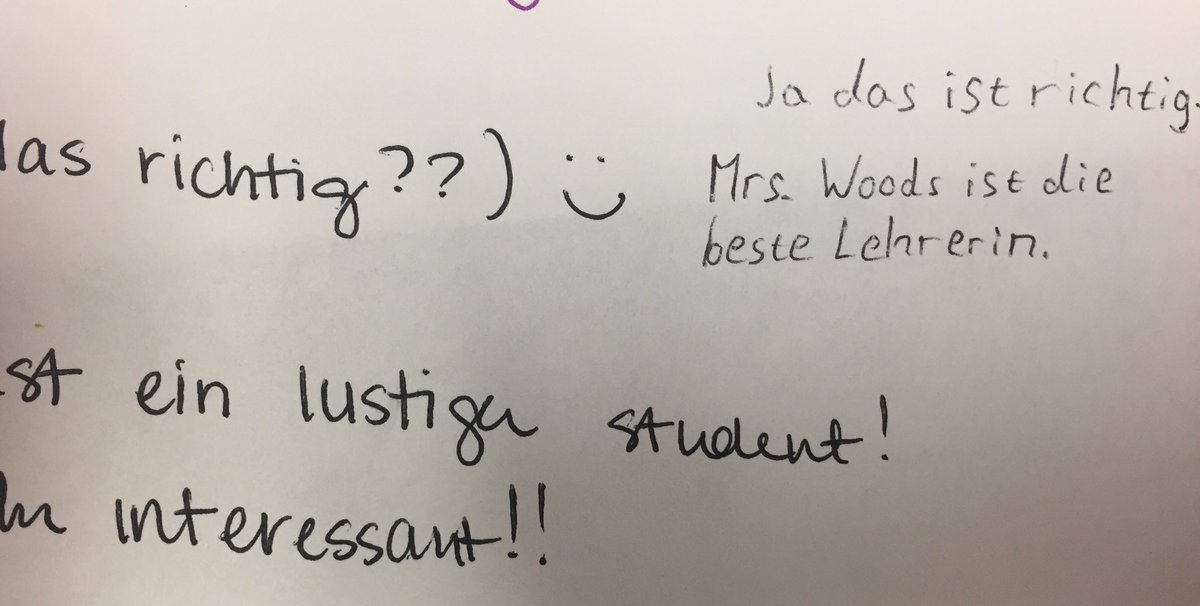 Ja das ist richtig.
das richtig??)
Mrs. Woods ist die
beste Lehrerin.
ist ein lustiger student!
interessant!!